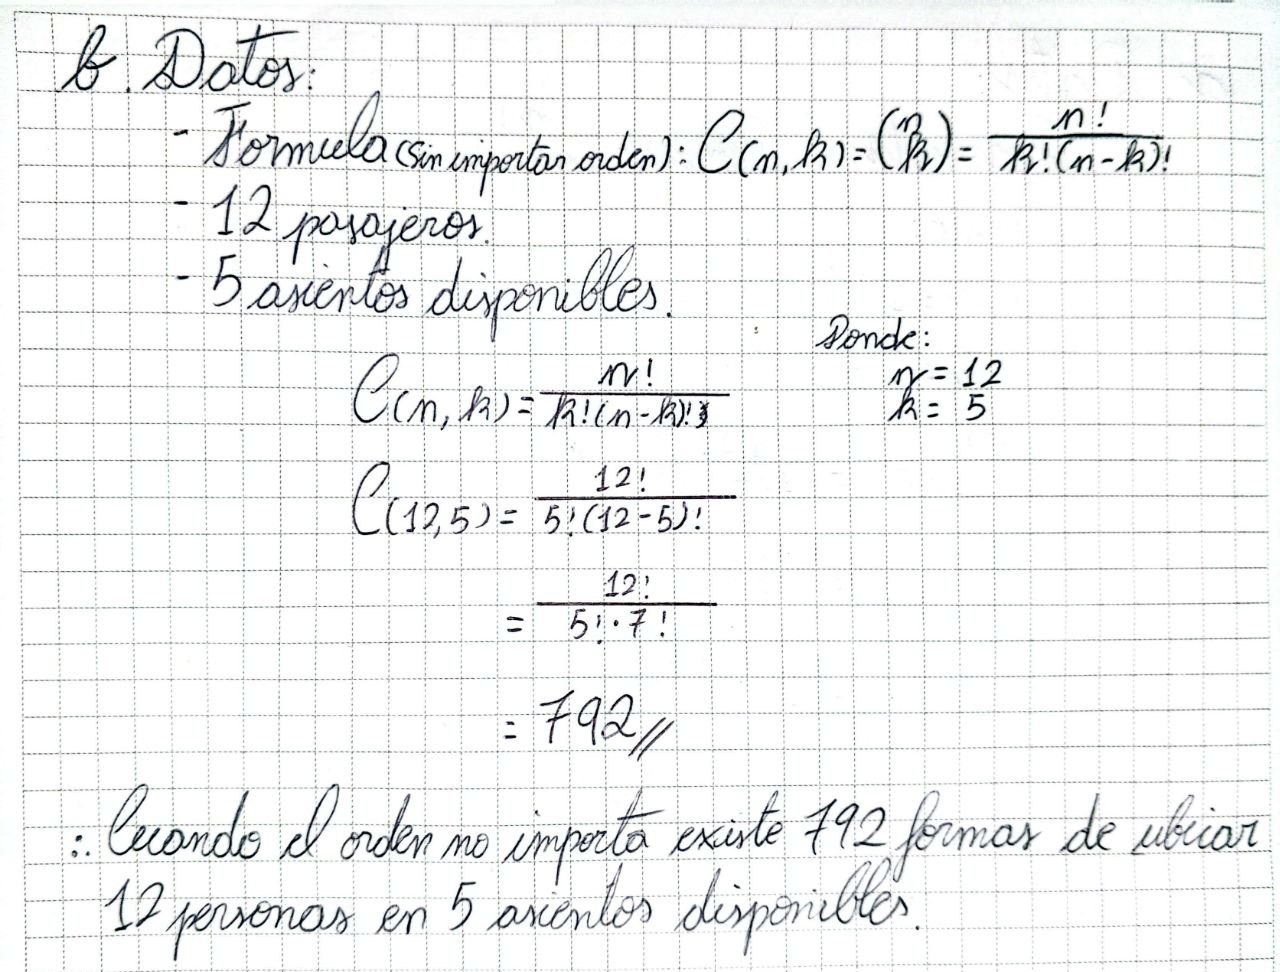 b. Datos:
- Formula (sin importar orden): C(n, k) = (n k) = n! / k!(n-k)!
- 12 pasajeros.
- 5 asientos disponibles.
Donde:
n = 12
k = 5
C(n, k) = n! / k!(n-k)!
C(12,5) = 12! / 5!(12-5)!
= 12! / 5!·7!
= 792//
∴ Cuando el orden no importa existe 792 formas de ubicar
12 personas en 5 asientos disponibles.